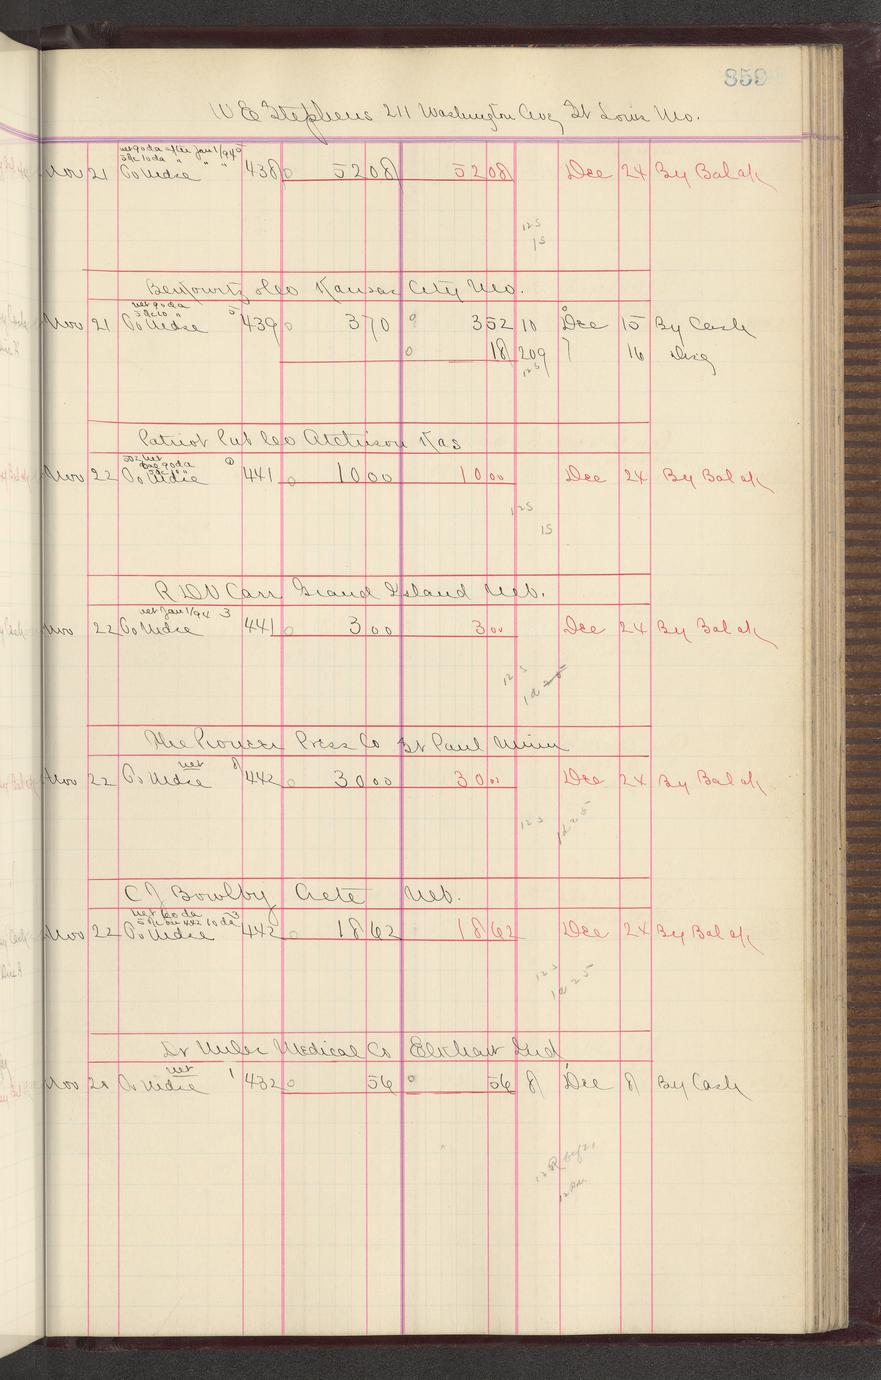 359
W E Stephens 211 Washington Ave St Louis Mo.
net 90 da after Jan 1/94 5
5% 10 da " " "
Nov 21 To Mdse 438 52 08 52 08 Dec 24 By Bal a/c
125
15
Berkowitz & Co Kansas City Mo.
net 90 da
5% 10 " 5
Nov 21 To Mdse 439 3 70 3 52 10 Dec 15 By Cash
18 209 16
125
Patriot Pub Co Atchison Kas
net
90 da
Nov 22 To Mdse 441 10 00 10 00 Dec 24 By Bal a/c
125
15
R D V Carr Grand Island Neb.
net Jan 1/94 3
Nov 22 To Mdse 441 3 00 3 00 Dec 24 By Bal a/c
The Pioneer Press Co St Paul Minn
net 8
Nov 22 To Mdse 442 30 00 30 00 Dec 24 By Bal a/c
C J Bowlby Crete Neb.
net 60 da
5% 10 da 3
Nov 22 To Mdse 442 18 62 18 62 Dec 24 By Bal a/c
Dr Miles Medical Co Elkhart Ind
net 1
Nov 20 To Mdse 432 56 56 8 Dec 8 By Cash